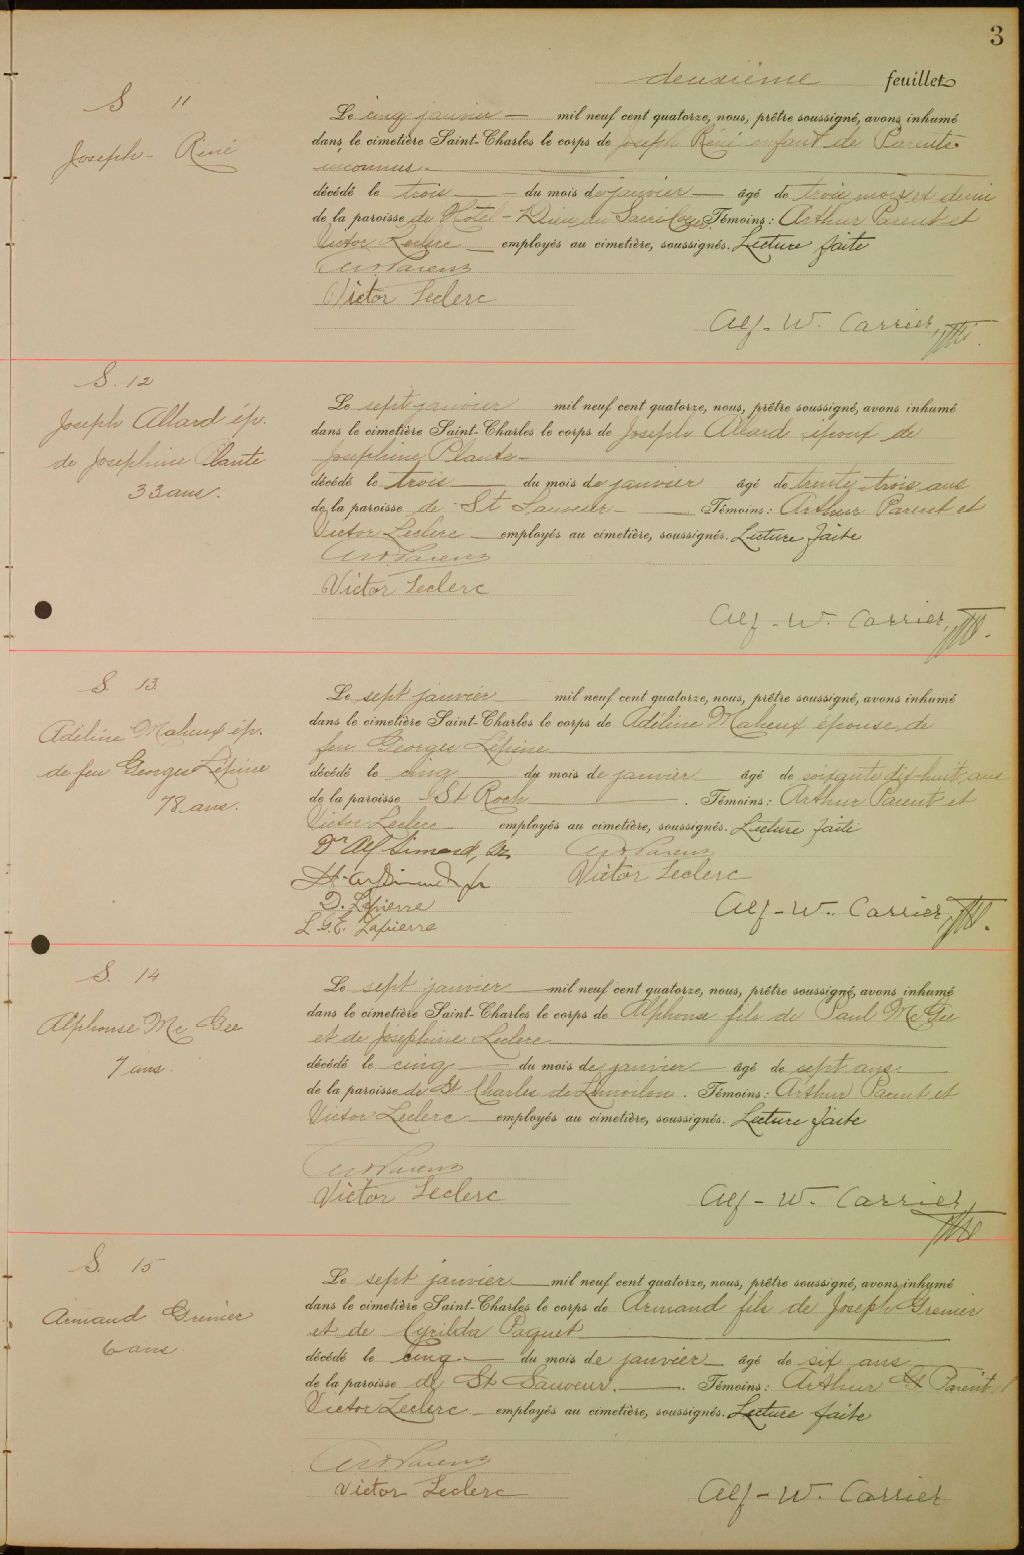 3
deuxième feuillet
S 11
Joseph - René
Le cinq janvier — mil neuf cent quatorze, nous, prêtre soussigné, avons inhumé
dans le cimetière Saint-Charles le corps de Joseph René enfant de Parents
inconnus.
décédé le trois — du mois de janvier — âgé de trois mois et demi
de la paroisse de Hôtel-Dieu du Sacré Coeur. Témoins: Arthur Parent et
Victor Leclerc — employés au cimetière, soussignés. Lecture faite
Art. Parent
Victor Leclerc
Alf-W. Carrier, Ptre.
S. 12
Joseph Allard ép.
de Josephine Plante
33 ans.
Le sept janvier mil neuf cent quatorze, nous, prêtre soussigné, avons inhumé
dans le cimetière Saint-Charles le corps de Joseph Allard époux de
Josephine Plante —
décédé le trois — du mois de janvier âgé de trente-trois ans
de la paroisse de St Sauveur — Témoins: Arthur Parent et
Victor Leclerc — employés au cimetière, soussignés. Lecture faite
Art. Parent
Victor Leclerc
Alf-W. Carrier, Ptre.
S. 13
Adéline Maheux ép.
de feu Georges Lépine
78 ans.
Le sept janvier mil neuf cent quatorze, nous, prêtre soussigné, avons inhumé
dans le cimetière Saint-Charles le corps de Adéline Maheux épouse de
feu Georges Lépine —
décédé le cinq — du mois de janvier — âgé de soixante dix-huit ans
de la paroisse St Roch — . Témoins: Arthur Parent et
Victor Leclerc — employés au cimetière, soussignés. Lecture faite
Dr Alf Simard, Sr. Art. Parent
Simard jr Victor Leclerc
D. Lapierre
L. G. E. Lapierre
Alf-W. Carrier, Ptre.
S. 14
Alphonse Mc Gee
7 ans.
Le sept janvier — mil neuf cent quatorze, nous, prêtre soussigné, avons inhumé
dans le cimetière Saint-Charles le corps de Alphonse fils de Paul McGee
et de Joséphine Leclerc —
décédé le cinq — du mois de janvier — âgé de sept ans —
de la paroisse de St Charles de Limoilou. Témoins: Arthur Parent et
Victor Leclerc — employés au cimetière, soussignés. Lecture faite
Art. Parent
Victor Leclerc
Alf-W. Carrier
Ptre
S. 15
Armand Grenier
6 ans.
Le sept janvier — mil neuf cent quatorze, nous, prêtre soussigné, avons inhumé
dans le cimetière Saint-Charles le corps de Armand fils de Joseph Grenier
et de Cyrilda Paquet —
décédé le cinq — du mois de janvier — âgé de six ans
de la paroisse de St Sauveur. — . Témoins: Arthur Parent et
Victor Leclerc — employés au cimetière, soussignés. Lecture faite
Art. Parent
Victor Leclerc
Alf-W. Carrier